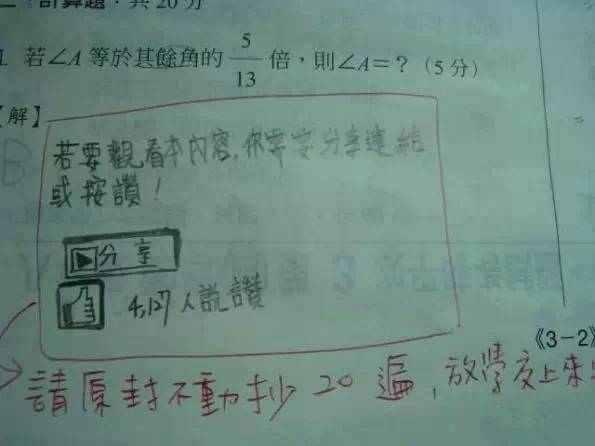 計算題：共20分
1. 若∠A等於其餘角的 5/13 倍，則∠A＝？（5分）
【解】
若要觀看本內容，你要守分享連結
或按讚！
分享
4,127人說讚
《3-2》
請原封不動抄20遍，放學交上來